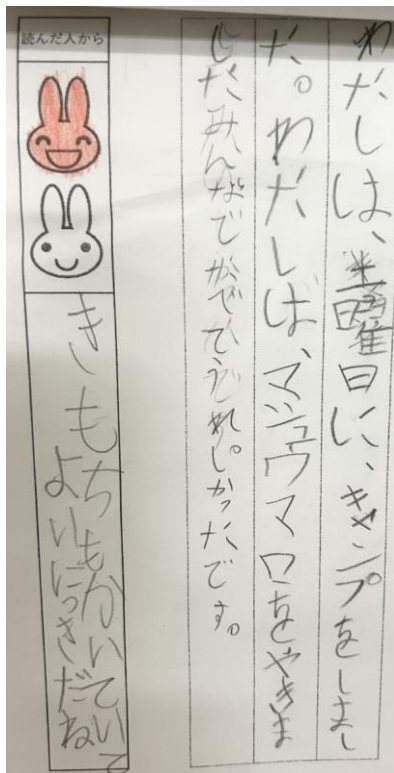 わたしは、曜日に、キャンプをしまし
た。わたしは、マシュウマロをやきま
したみんなでうれしかったです。
読んだ人から
きもちもかいていて
よいにっきだね